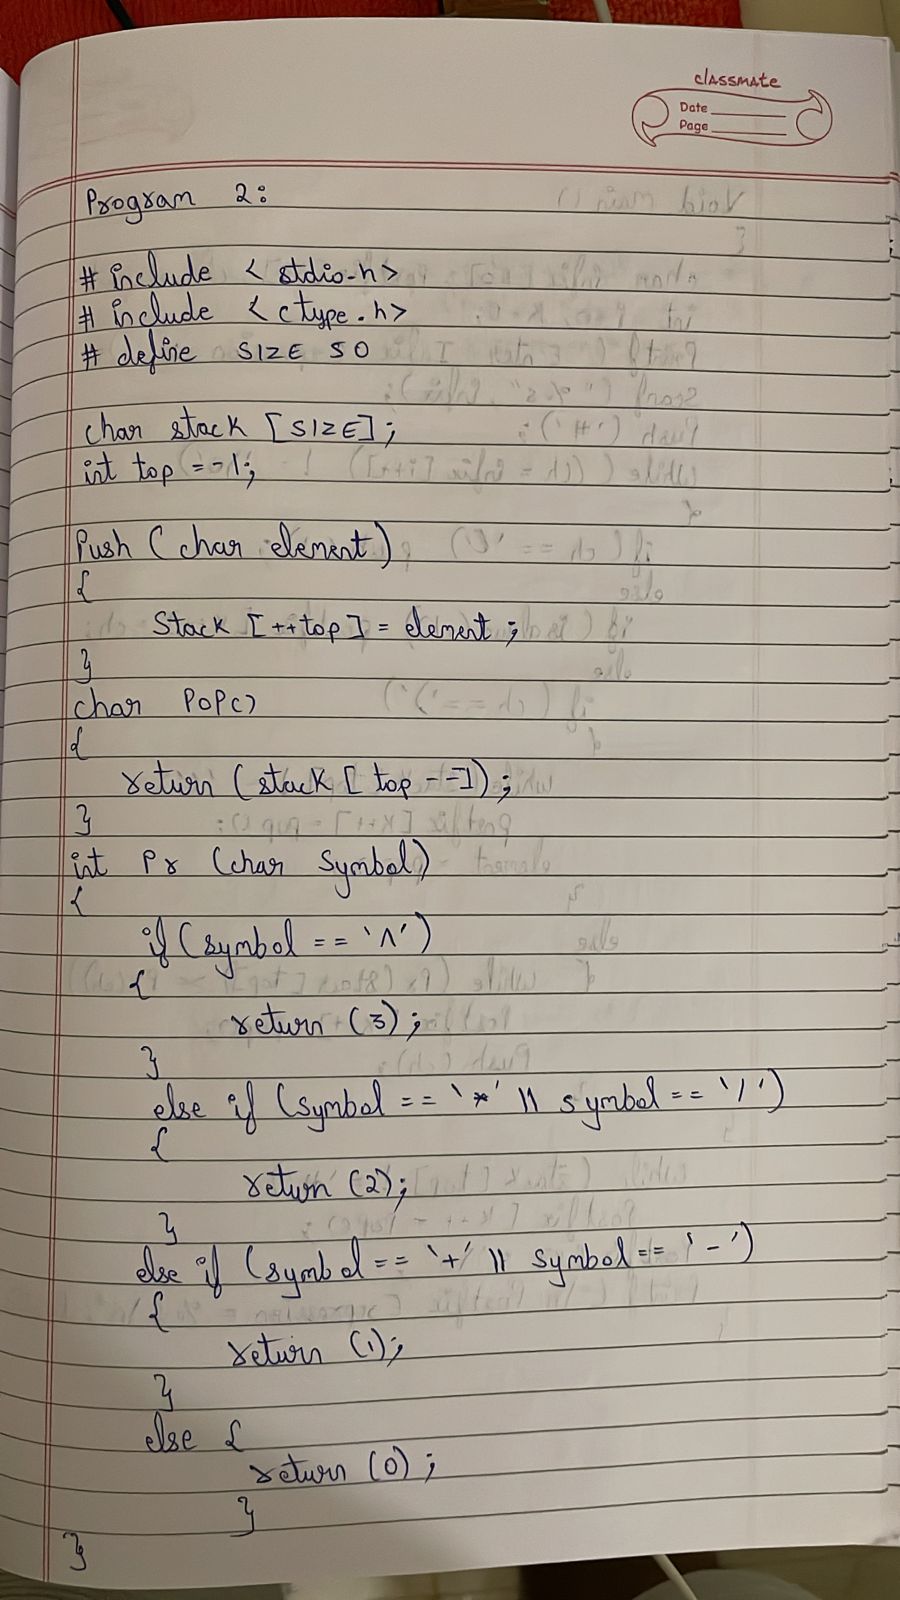 classmate
Date
Page
Program 2:
# include < stdio.h>
# include <ctype.h>
# define SIZE 50
char stack [SIZE];
int top = -1;
Push (char element)
{
Stack [++top] = element;
}
char POP()
{
return (stack [ top --]);
}
int Pr (char Symbol)
{
if (symbol == '^')
{
return (3);
}
else if (symbol == '*' || symbol == '/')
{
return (2);
}
else if (symbol == '+' || symbol == '-')
{
return (1);
}
else {
return (0);
}
}